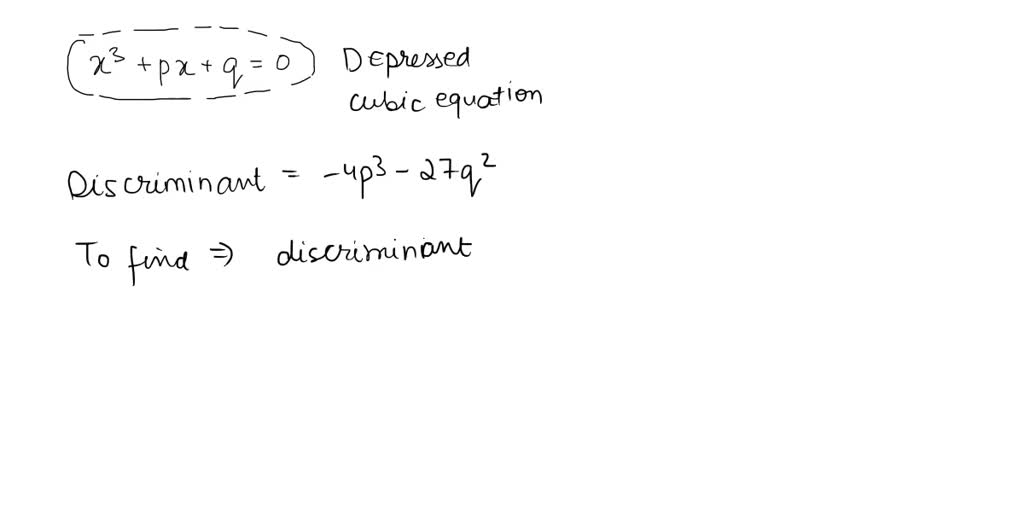 x³ + px + q = 0 Depressed
cubic equation
Discriminant = -4p³ - 27q²
To find ⇒ discriminant